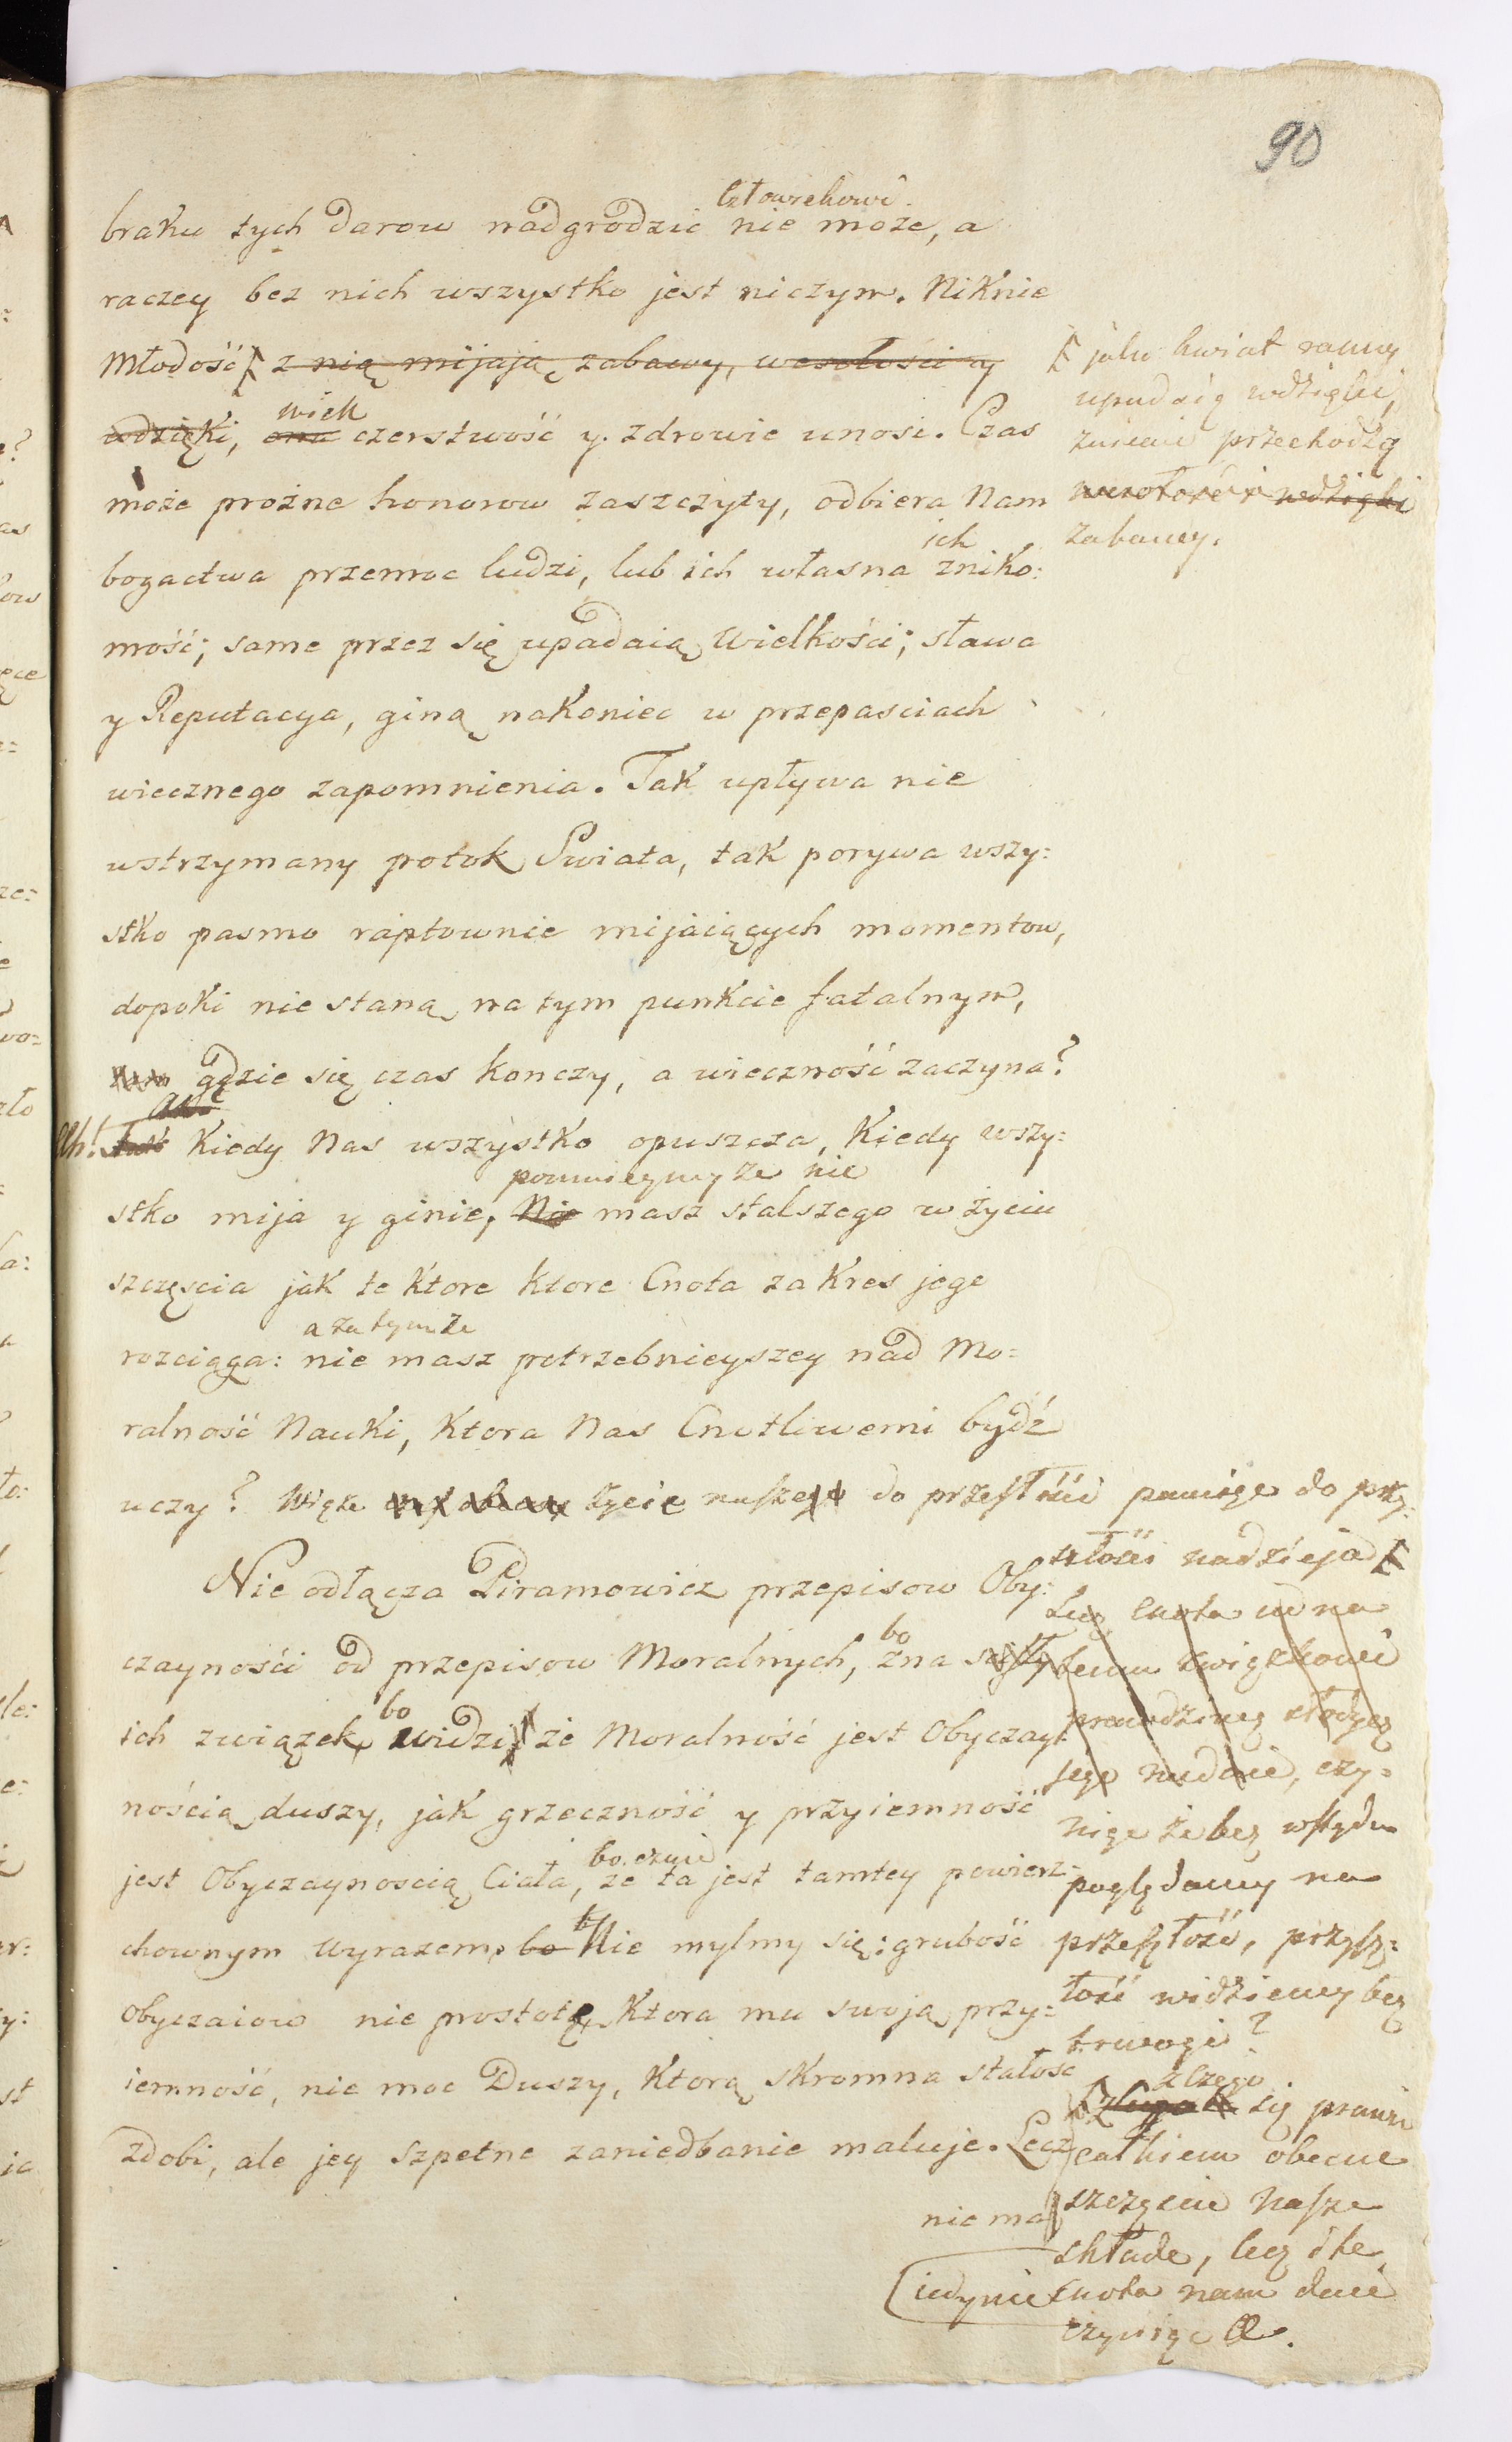 90
człowiekowi
braku tych darow nadgrodzić nie może, a
raczey bez nich wszystko jest niczym. Niknie
Młodość z nią mijają zabawy, wesołości y
wdzięki, wiek czerstwość y zdrowie unosi. Czas
może prożne honorow zaszczyty, odbiera Nam
ich
bogactwa przemoc ludzi, lub ich własna zniko:
mość; same przez się upadaią Wielkości; sława
y Reputacya, giną nakoniec w przepasciach
wiecznego zapomnienia. Tak upływa nie
wstrzymany potok Swiata, tak porywa wszy:
stko pasmo raptownie mijaiących momentow,
dopoki nie staną na tym punkcie fatalnym,
gdzie się czas konczy, a wieczność zaczyna?
Ach! Kiedy Nas wszystko opuszcza, Kiedy wszy:
pomnieymy że nie
stko mija y ginie, Nie masz stalszego w życiu
szczęscia jak te ktore ktore Cnota za Kres jego
a zatym że
rozciąga: nie masz potrzebnieyszey nad Mo:
ralność Nauki, Ktora Nas Cnotliwemi bydź
uczy? Wiąże życie nasze do przeszłości pamięc do przy:
Nie odłącza Piramowicz przepisow Oby:
bo
czayności od przepisow Moralnych, zna
bo
ich związek, widzi że Moralność jest Obyczay:
nością duszy, jak grzeczność y przyiemność
bo czuie
jest Obyczaynoscią Ciała, że ta jest tamtey powierz:
chownym wyrazem, bo Nie mylmy się: grubość
obyczaiow nie prostotę, Ktora ma swoją przy:
iemność, nie moc Duszy, Ktorą skromna stałosc
zdobi, ale jey szpetne zaniedbanie maluje. Lecz
nie ma
jako kwiat ranny
upadaią wdzięki,
przechodzą
wesołości wdzięki
zabawy.
szłości nadzieja
Lecz Cnota
temu związkowi
prawdziwą słodycz
jego nadaie, czy:
nige że bez wstydu
poglądamy na
przeszłość, przysz:
łość widziemy bez
trwogi?
z czego
się prawie
całkiem obecne
szczęscie Nasze
składa, lecz i te
iedynie Cnota nam daie